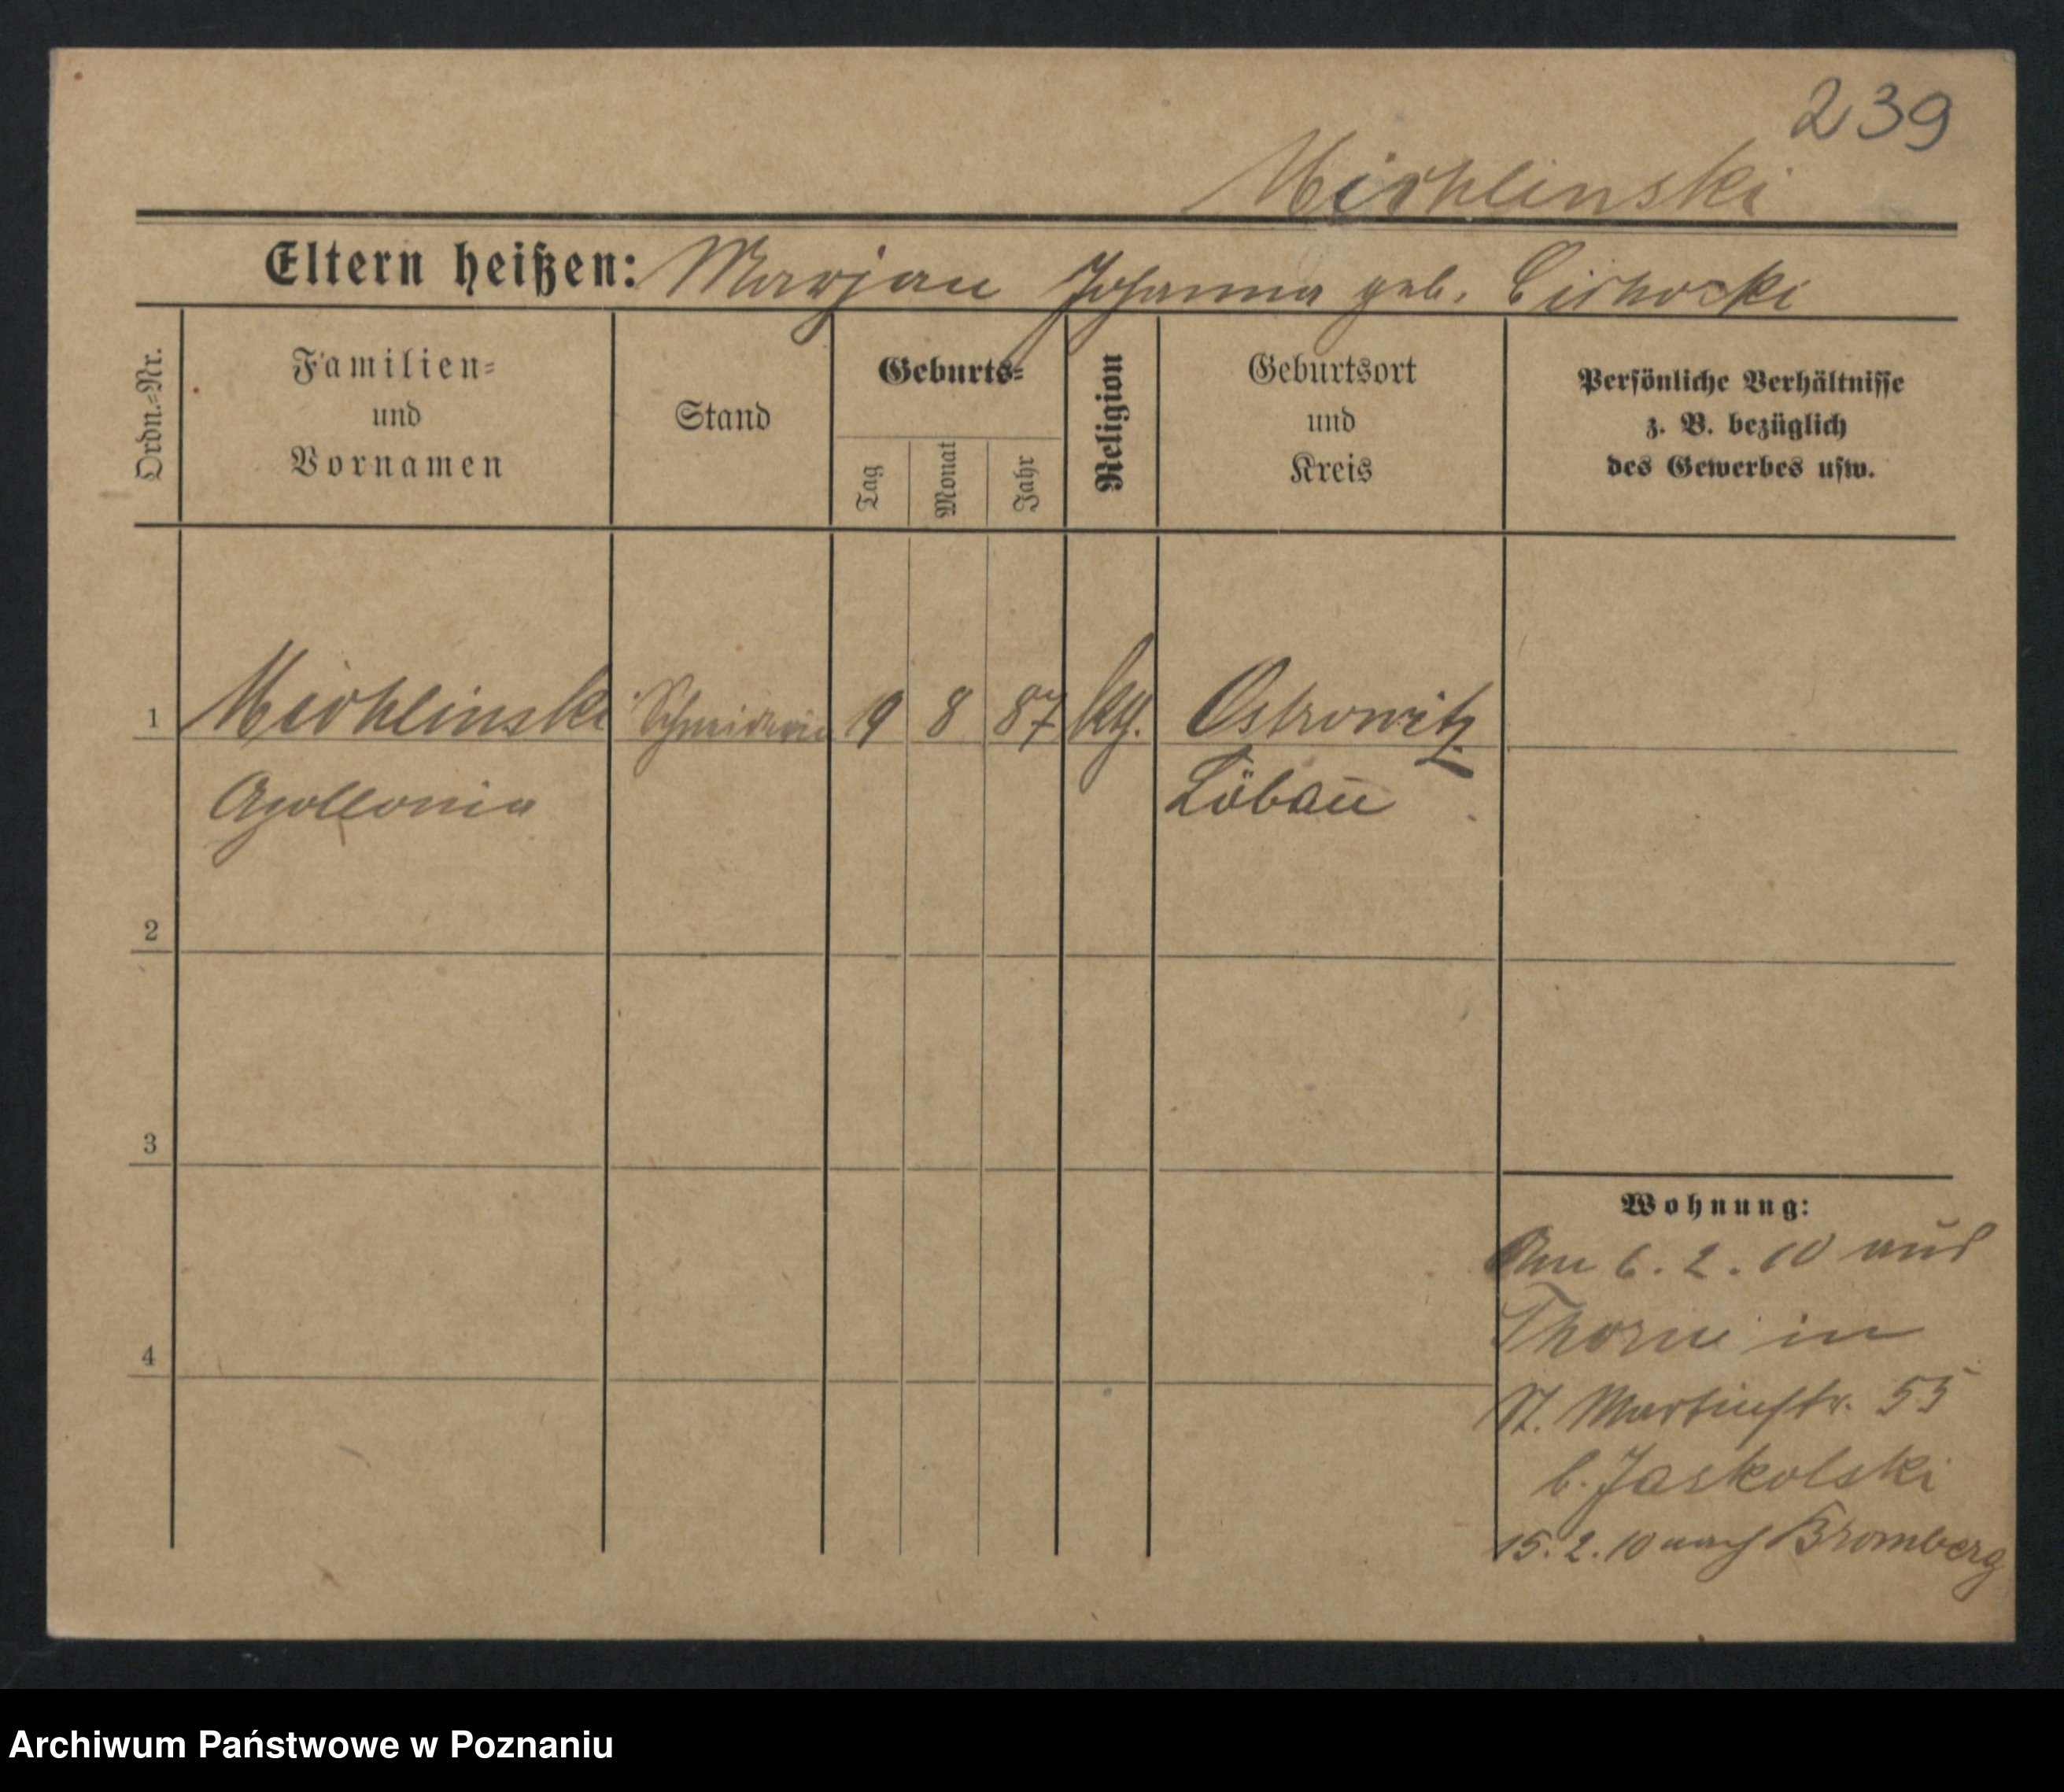 239
Michlinski
Eltern heißen: Marjan Johanna geb. Cichocki
Ordn.=Nr.
Familien=
und
Vornamen
Stand
Geburts=
Tag
Monat
Jahr
Religion
Geburtsort
und
Kreis
Persönliche Verhältnisse
z. B. bezüglich
des Gewerbes usw.
1 Michlinski Schneiderin 9 8 87 kth. Ostrowitz
Apollonia Löbau
2
3
4
Wohnung:
Am 6. 2. 10 aus
Thorn in
St. Martinstr. 55
b. Jaskolski
15. 2. 10 nach Bromberg
Archiwum Państwowe w Poznaniu